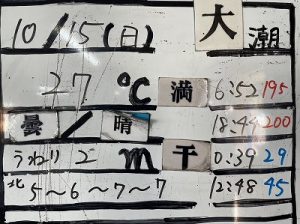 10/15(日) 大潮
27℃ 満 6:52 195
曇/晴 18:49 200
うねり 2m 干 0:39 29
北 5～6～7～7 12:48 45